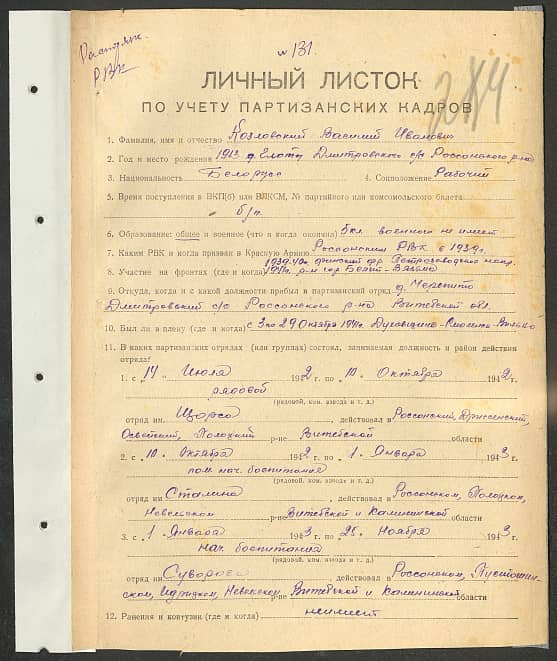 Распоряж.
РВК
№ 131.
284
ЛИЧНЫЙ ЛИСТОК
ПО УЧЕТУ ПАРТИЗАНСКИХ КАДРОВ
1. Фамилия, имя и отчество Козловский Василий Иванович
2. Год и место рождения 1913 д. Дмитровского с/с Россонского р-на
3. Национальность Белорусс 4. Соцположение Рабочий
5. Время поступления в ВКП(б) или ВЛКСМ, № партийного или комсомольского билета
б/п.
6. Образование: общее и военное (что и когда окончил) 5 кл военного не имеет
7. Каким РВК и когда призван в Красную Армию Россонским РВК в 1939г.
1939-40г. финский фр. Петрозаводское напр.
8. Участие на фронтах (где и когда) 1941г. р-н гор Белый-Вязьма
9. Откуда, когда и с какой должности прибыл в партизанский отряд д.
Дмитровский с/с Россонского р-на Витебской обл.
10. Был ли в плену (где и когда) с 3 по 29 Октября 1941г. Духовщино-Смоленск
11. В каких партизанских отрядах (или группах) состоял, занимаемая должность и район действия
отряда?
1. с 14 Июля 1942 г. по 10 Октября 1942 г.
рядовой
(рядовой, ком. взвода и т. д.)
отряд им. Щорса, действовал в Россонский, Дриссенский,
Освейский, Полоцкий р-не Витебской области
2. с 10 Октября 1942 г. по 1 Января 1943 г.
пом. нач. боепитания
(рядовой, ком. взвода и т. д.)
отряд им Сталина действовал в Россонском, Полоцком,
Невельском Витебской и Калининской
3. с 1 Января 1943 г. по 25 Ноября 1943 г.
нач. боепитания
(рядовой, ком. взвода и т. д.)
отряд им. Суворова действовал в Россонском, Пустошин-
ском, Идрицком, Невельском р-не Витебской и Калининской
12. Ранения и контузии (где и когда) неимеет